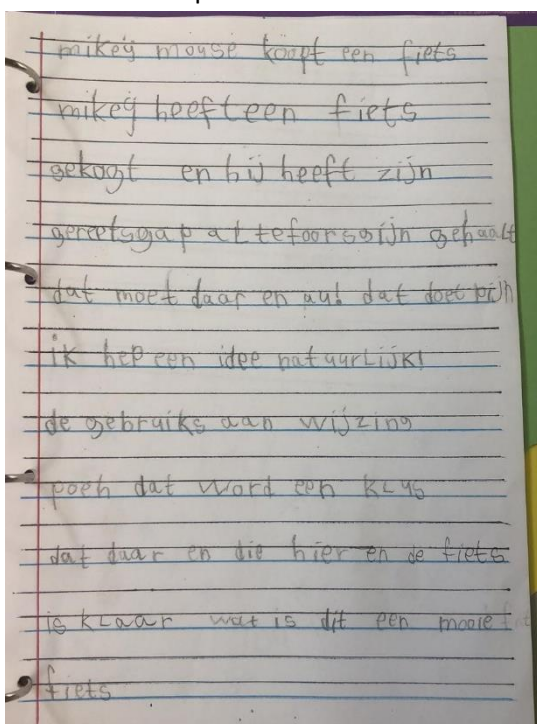 mikey mouse koopt een fiets
mikey heeft een fiets
gekogt en hij heeft zijn
gereetsgap at tefoorsgijn gehaalt
dat moet daar en au! dat doet pijn
ik hep een idee natuurlijk!
de gebruiks aan wijzing
poeh dat word een klus
dat daar en die hier en de fiets
is klaar wat is dit een mooie
fiets